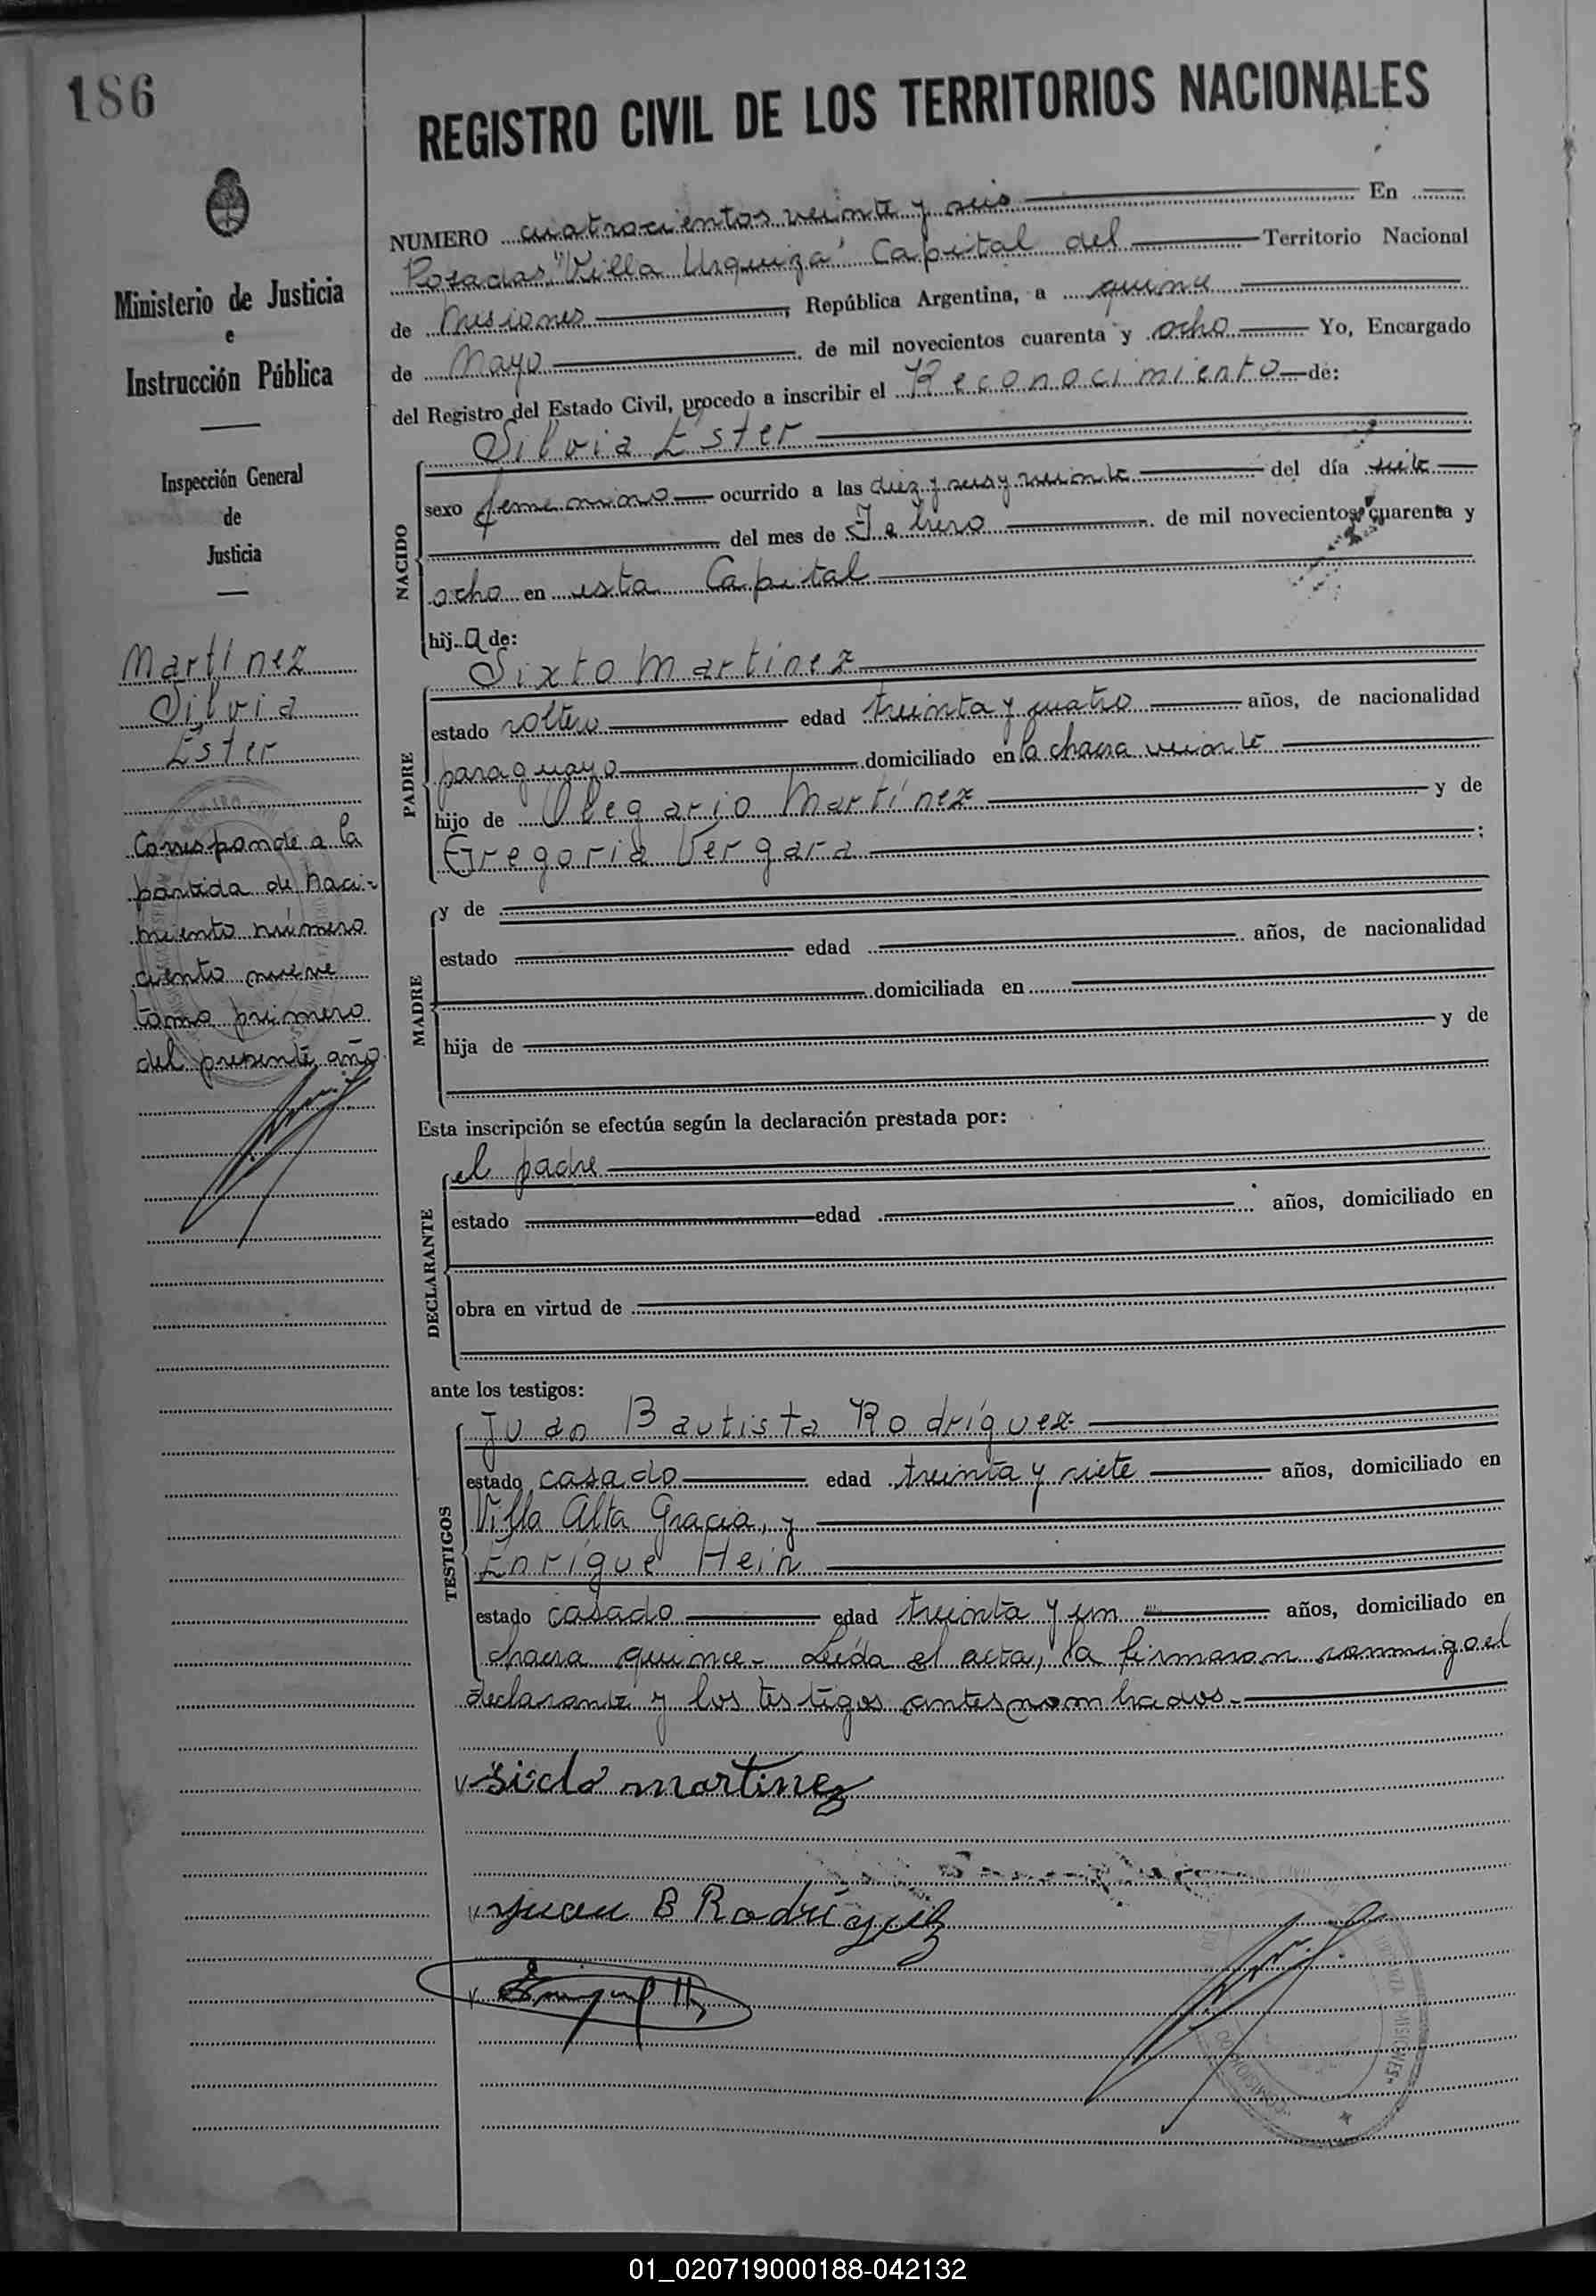 186
REGISTRO CIVIL DE LOS TERRITORIOS NACIONALES
Ministerio de Justicia
e
Instrucción Pública
Inspección General
de
Justicia
Martínez
Silvia
Ester
Corresponde a la
partida de naci-
miento número
ciento nueve
tomo primero
del presente año
NUMERO cuatrocientos veinte y seis En
Posadas "Villa Urquiza" Capital del Territorio Nacional
de Misiones, República Argentina, a quince
de Mayo de mil novecientos cuarenta y ocho Yo, Encargado
del Registro del Estado Civil, procedo a inscribir el Reconocimiento de:
NACIDO
Silvia Ester
sexo femenino ocurrido a las diez y seis y veinte del día siete
del mes de Febrero de mil novecientos cuarenta y
ocho en esta Capital
hija de:
PADRE
Sixto Martínez
estado soltero edad treinta y cuatro años, de nacionalidad
paraguayo domiciliado en la chacra veinte
hijo de Olegario Martínez y de
Gregoria Vergara;
MADRE
y de
estado edad años, de nacionalidad
domiciliada en
hija de y de
Esta inscripción se efectúa según la declaración prestada por:
DECLARANTE
el padre
estado edad años, domiciliado en
obra en virtud de
ante los testigos:
TESTIGOS
Juan Bautista Rodríguez
estado casado edad treinta y siete años, domiciliado en
Villa Alta Gracia, y
Enrique Hein
estado casado edad treinta y un años, domiciliado en
chacra quince.- Leída el acta, la firmaron conmigo el
declarante y los testigos antes nombrados.-
sicto martinez
Juan B Rodríguez
MISIONES
01_020719000188-042132